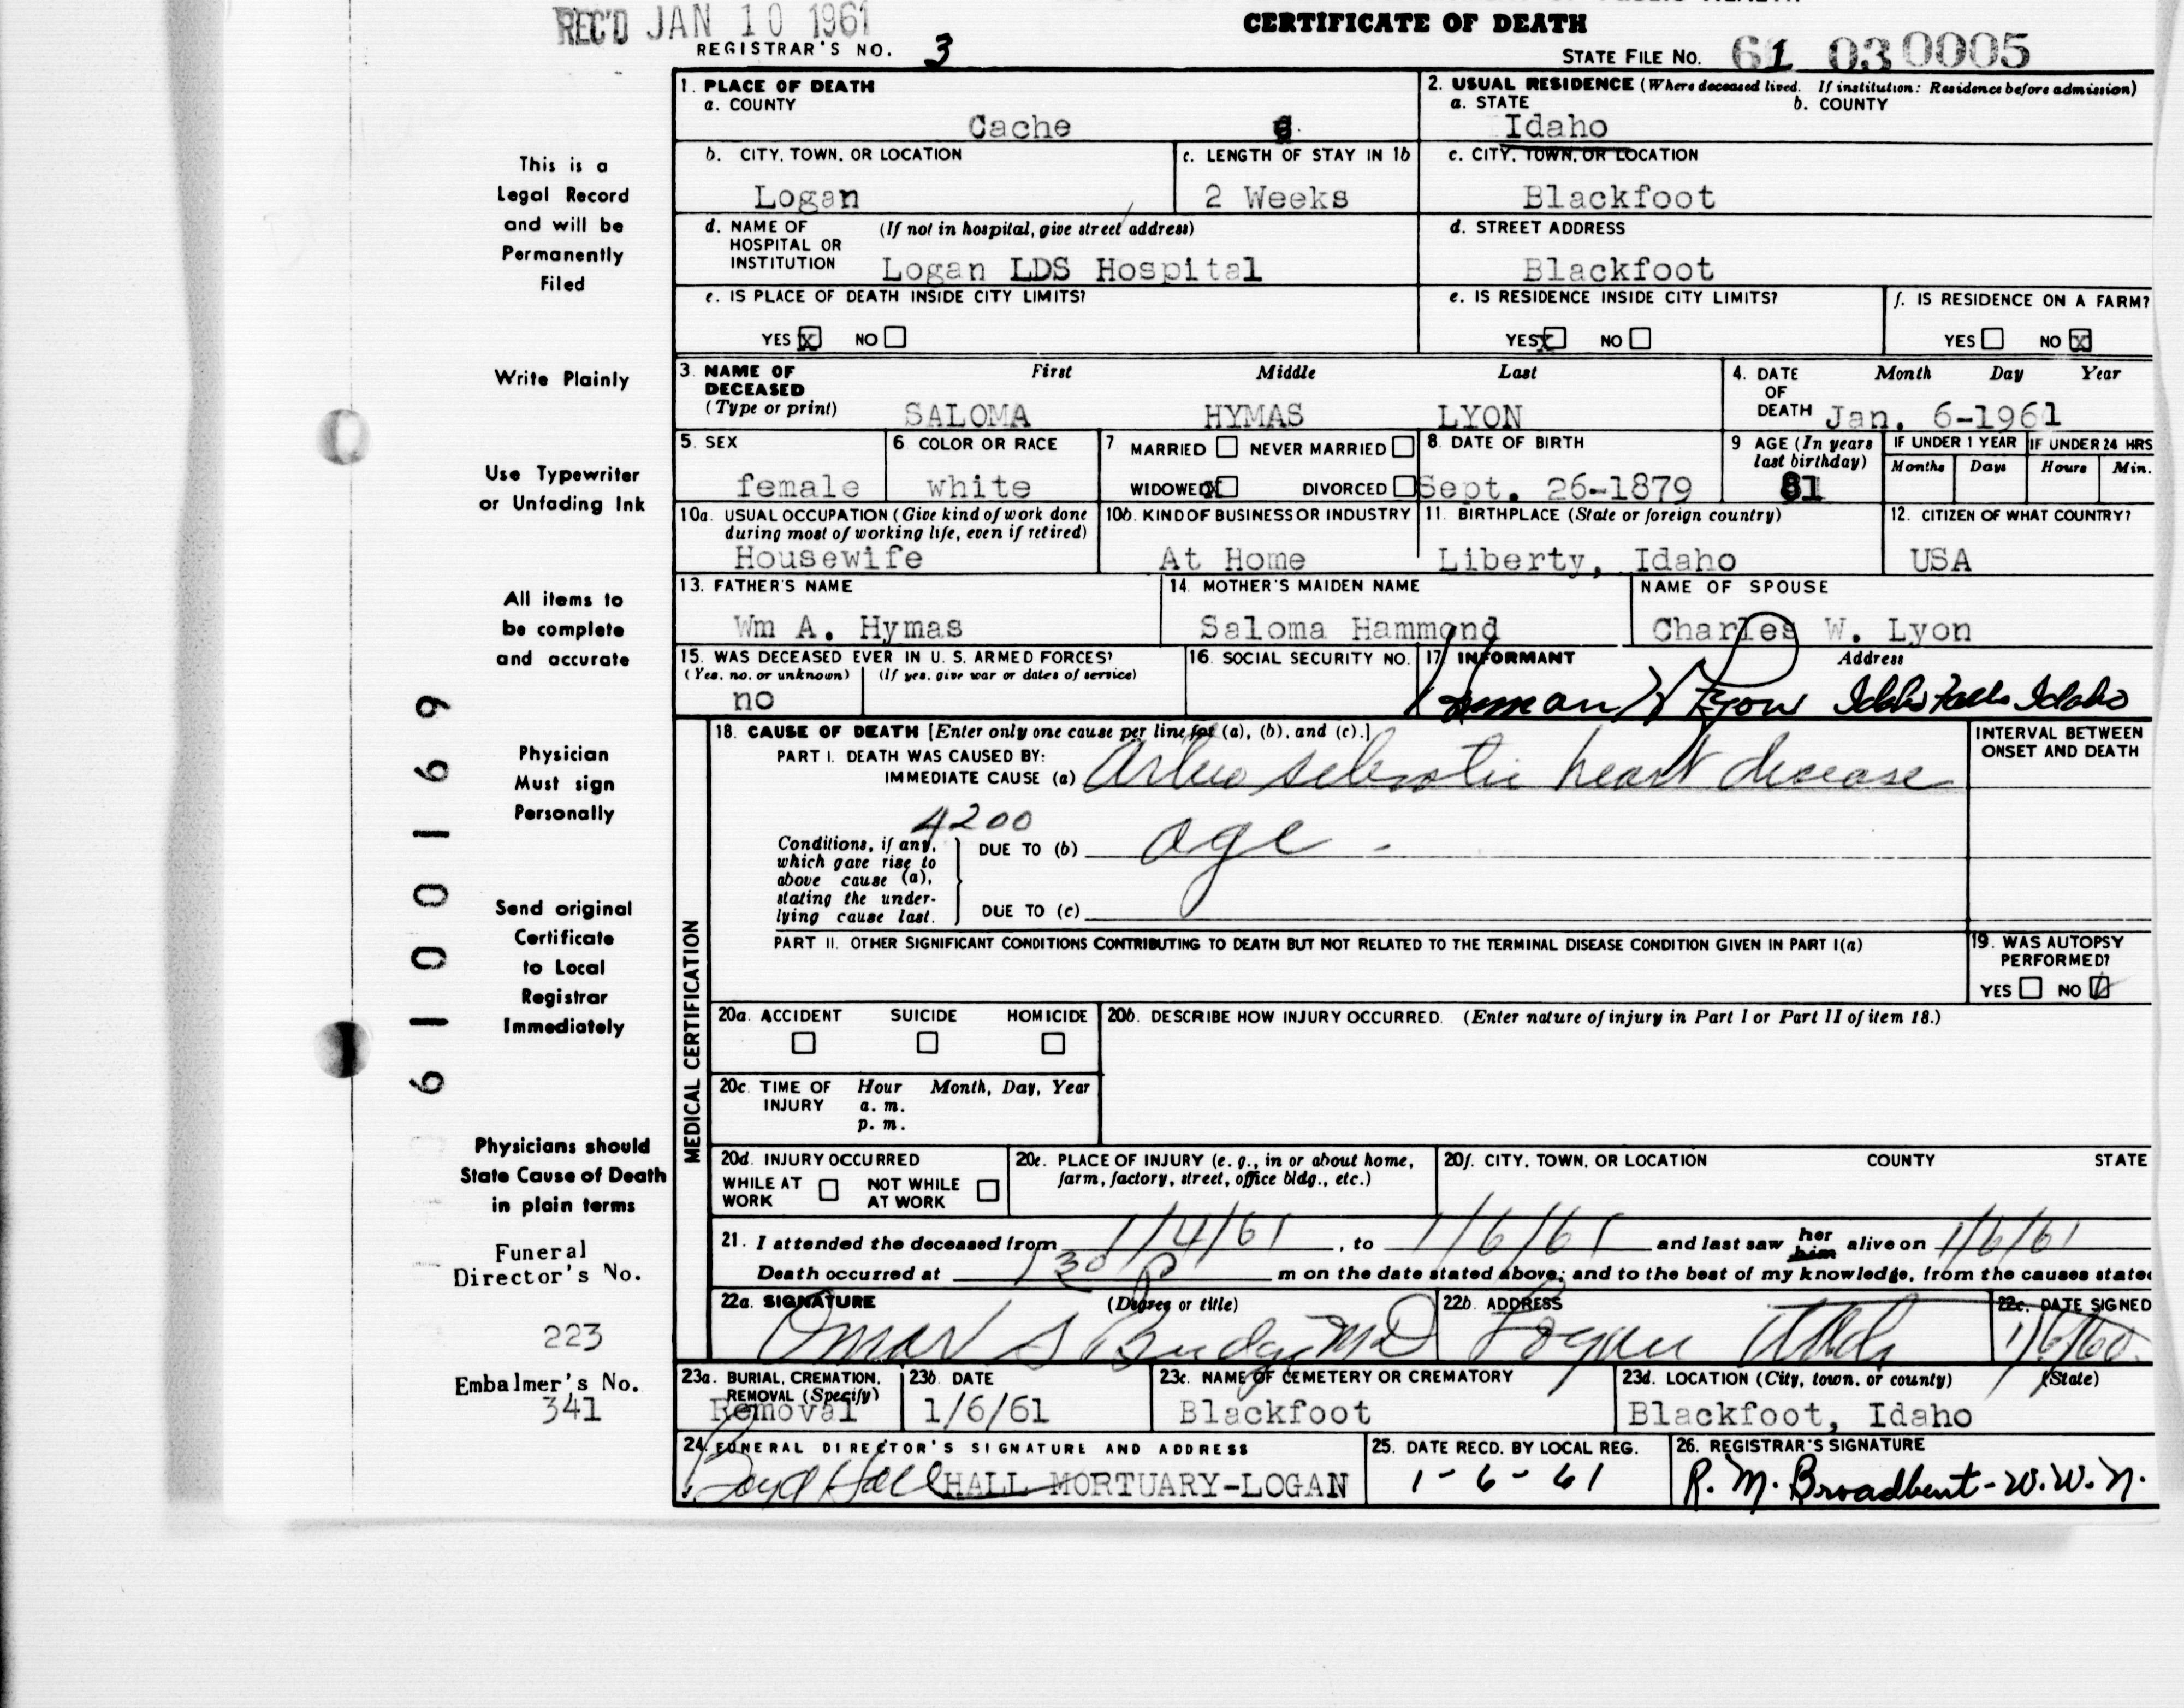 REC'D JAN 10 1961
CERTIFICATE OF DEATH
REGISTRAR'S NO. 3
STATE FILE NO. 61 03 0005
1. PLACE OF DEATH
a. COUNTY
Cache
2. USUAL RESIDENCE (Where deceased lived. If institution: Residence before admission)
a. STATE b. COUNTY
Idaho
b. CITY, TOWN, OR LOCATION
Logan
c. LENGTH OF STAY IN 1b
2 Weeks
c. CITY, TOWN, OR LOCATION
Blackfoot
d. NAME OF HOSPITAL OR INSTITUTION (If not in hospital, give street address)
Logan LDS Hospital
d. STREET ADDRESS
Blackfoot
e. IS PLACE OF DEATH INSIDE CITY LIMITS?
YES X NO
e. IS RESIDENCE INSIDE CITY LIMITS?
YES X NO
f. IS RESIDENCE ON A FARM?
YES NO X
3. NAME OF DECEASED (Type or print)
First Middle Last
SALOMA HYMAS LYON
4. DATE OF DEATH Month Day Year
Jan. 6-1961
5. SEX
female
6 COLOR OR RACE
white
7 MARRIED NEVER MARRIED
WIDOWED X DIVORCED
8. DATE OF BIRTH
Sept. 26-1879
9 AGE (In years last birthday)
81
IF UNDER 1 YEAR
Months Days
IF UNDER 24 HRS
Hours Min.
10a. USUAL OCCUPATION (Give kind of work done during most of working life, even if retired)
Housewife
10b. KIND OF BUSINESS OR INDUSTRY
At Home
11. BIRTHPLACE (State or foreign country)
Liberty, Idaho
12. CITIZEN OF WHAT COUNTRY?
USA
13. FATHER'S NAME
Wm A. Hymas
14. MOTHER'S MAIDEN NAME
Saloma Hammond
NAME OF SPOUSE
Charles W. Lyon
15. WAS DECEASED EVER IN U. S. ARMED FORCES?
(Yes, no, or unknown) (If yes, give war or dates of service)
no
16. SOCIAL SECURITY NO.
17. INFORMANT Address
Lyon Idaho Falls Idaho
MEDICAL CERTIFICATION
18. CAUSE OF DEATH [Enter only one cause per line for (a), (b), and (c).]
PART I. DEATH WAS CAUSED BY:
IMMEDIATE CAUSE (a) Arterio sclerotic heart disease
4200
Conditions, if any, which gave rise to above cause (a), stating the underlying cause last.
DUE TO (b) age -
DUE TO (c)
INTERVAL BETWEEN ONSET AND DEATH
PART II. OTHER SIGNIFICANT CONDITIONS CONTRIBUTING TO DEATH BUT NOT RELATED TO THE TERMINAL DISEASE CONDITION GIVEN IN PART I(a)
19. WAS AUTOPSY PERFORMED?
YES NO
20a. ACCIDENT SUICIDE HOMICIDE
20b. DESCRIBE HOW INJURY OCCURRED. (Enter nature of injury in Part I or Part II of item 18.)
20c. TIME OF INJURY Hour Month, Day, Year
a. m.
p. m.
20d. INJURY OCCURRED
WHILE AT WORK NOT WHILE AT WORK
20e. PLACE OF INJURY (e. g., in or about home, farm, factory, street, office bldg., etc.)
20f. CITY, TOWN, OR LOCATION COUNTY STATE
21. I attended the deceased from 1/4/61, to 1/6/61 and last saw her him alive on 1/6/61
Death occurred at 130 P m on the date stated above; and to the best of my knowledge, from the causes stated
22a. SIGNATURE (Degree or title)
Omar S Budge MD
22b. ADDRESS
Logan Utah
22c. DATE SIGNED
1/6/60
23a. BURIAL, CREMATION, REMOVAL (Specify)
Removal
23b. DATE
1/6/61
23c. NAME OF CEMETERY OR CREMATORY
Blackfoot
23d. LOCATION (City, town, or county) (State)
Blackfoot, Idaho
24. FUNERAL DIRECTOR'S SIGNATURE AND ADDRESS
Boyd Hall HALL MORTUARY-LOGAN
25. DATE RECD. BY LOCAL REG.
1-6-61
26. REGISTRAR'S SIGNATURE
R. M. Broadbent-W.W.N.
This is a
Legal Record
and will be
Permanently
Filed
Write Plainly
Use Typewriter
or Unfading Ink
All items to
be complete
and accurate
Physician
Must sign
Personally
Send original
Certificate
to Local
Registrar
Immediately
Physicians should
State Cause of Death
in plain terms
Funeral
Director's No.
223
Embalmer's No.
341
6100169